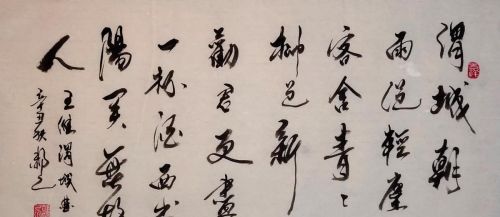 渭城朝
雨浥輕塵
客舍青々
柳色新
勸君更盡
一杯酒西出
陽关無故
人
王維渭城曲
辛丑秋